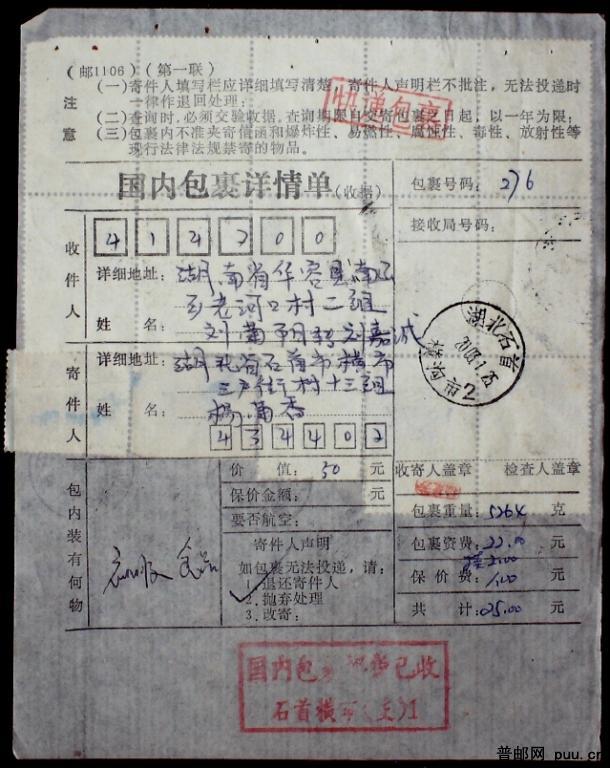 (邮1106)(第一联)
快递包裹
注意
(一)寄件人填写栏应详细填写清楚,寄件人声明栏不批注,无法投递时
一律作退回处理;
(二)查询时,必须交验收据,查询期限自交寄包裹之日起,以一年为限;
(三)包裹内不准夹寄信函和爆炸性、易燃性、腐蚀性、毒性、放射性等
现行法律法规禁寄的物品。
国内包裹详情单(收据)
包裹号码:276
接收局号码:
收件人
414200
详细地址:湖南省华容县
老河口村二组
姓名:刘 刘嘉诚
湖北石首
2003.1.25
2
寄件人
详细地址:湖北省石首市横市
村十三组
姓名:杨
434402
包内装有何物
价值:50元
保价金额:元
要否航空:
寄件人声明
如包裹无法投递,请:
1.退还寄件人
2.抛弃处理
3.改寄:
收寄人盖章
检查人盖章
包裹重量:5264克
包裹资费:22.00元
挂2.00
保价费:1.00元
共计:25.00元
国内包 已收
石首横市(支)1
普邮网 puu.cn